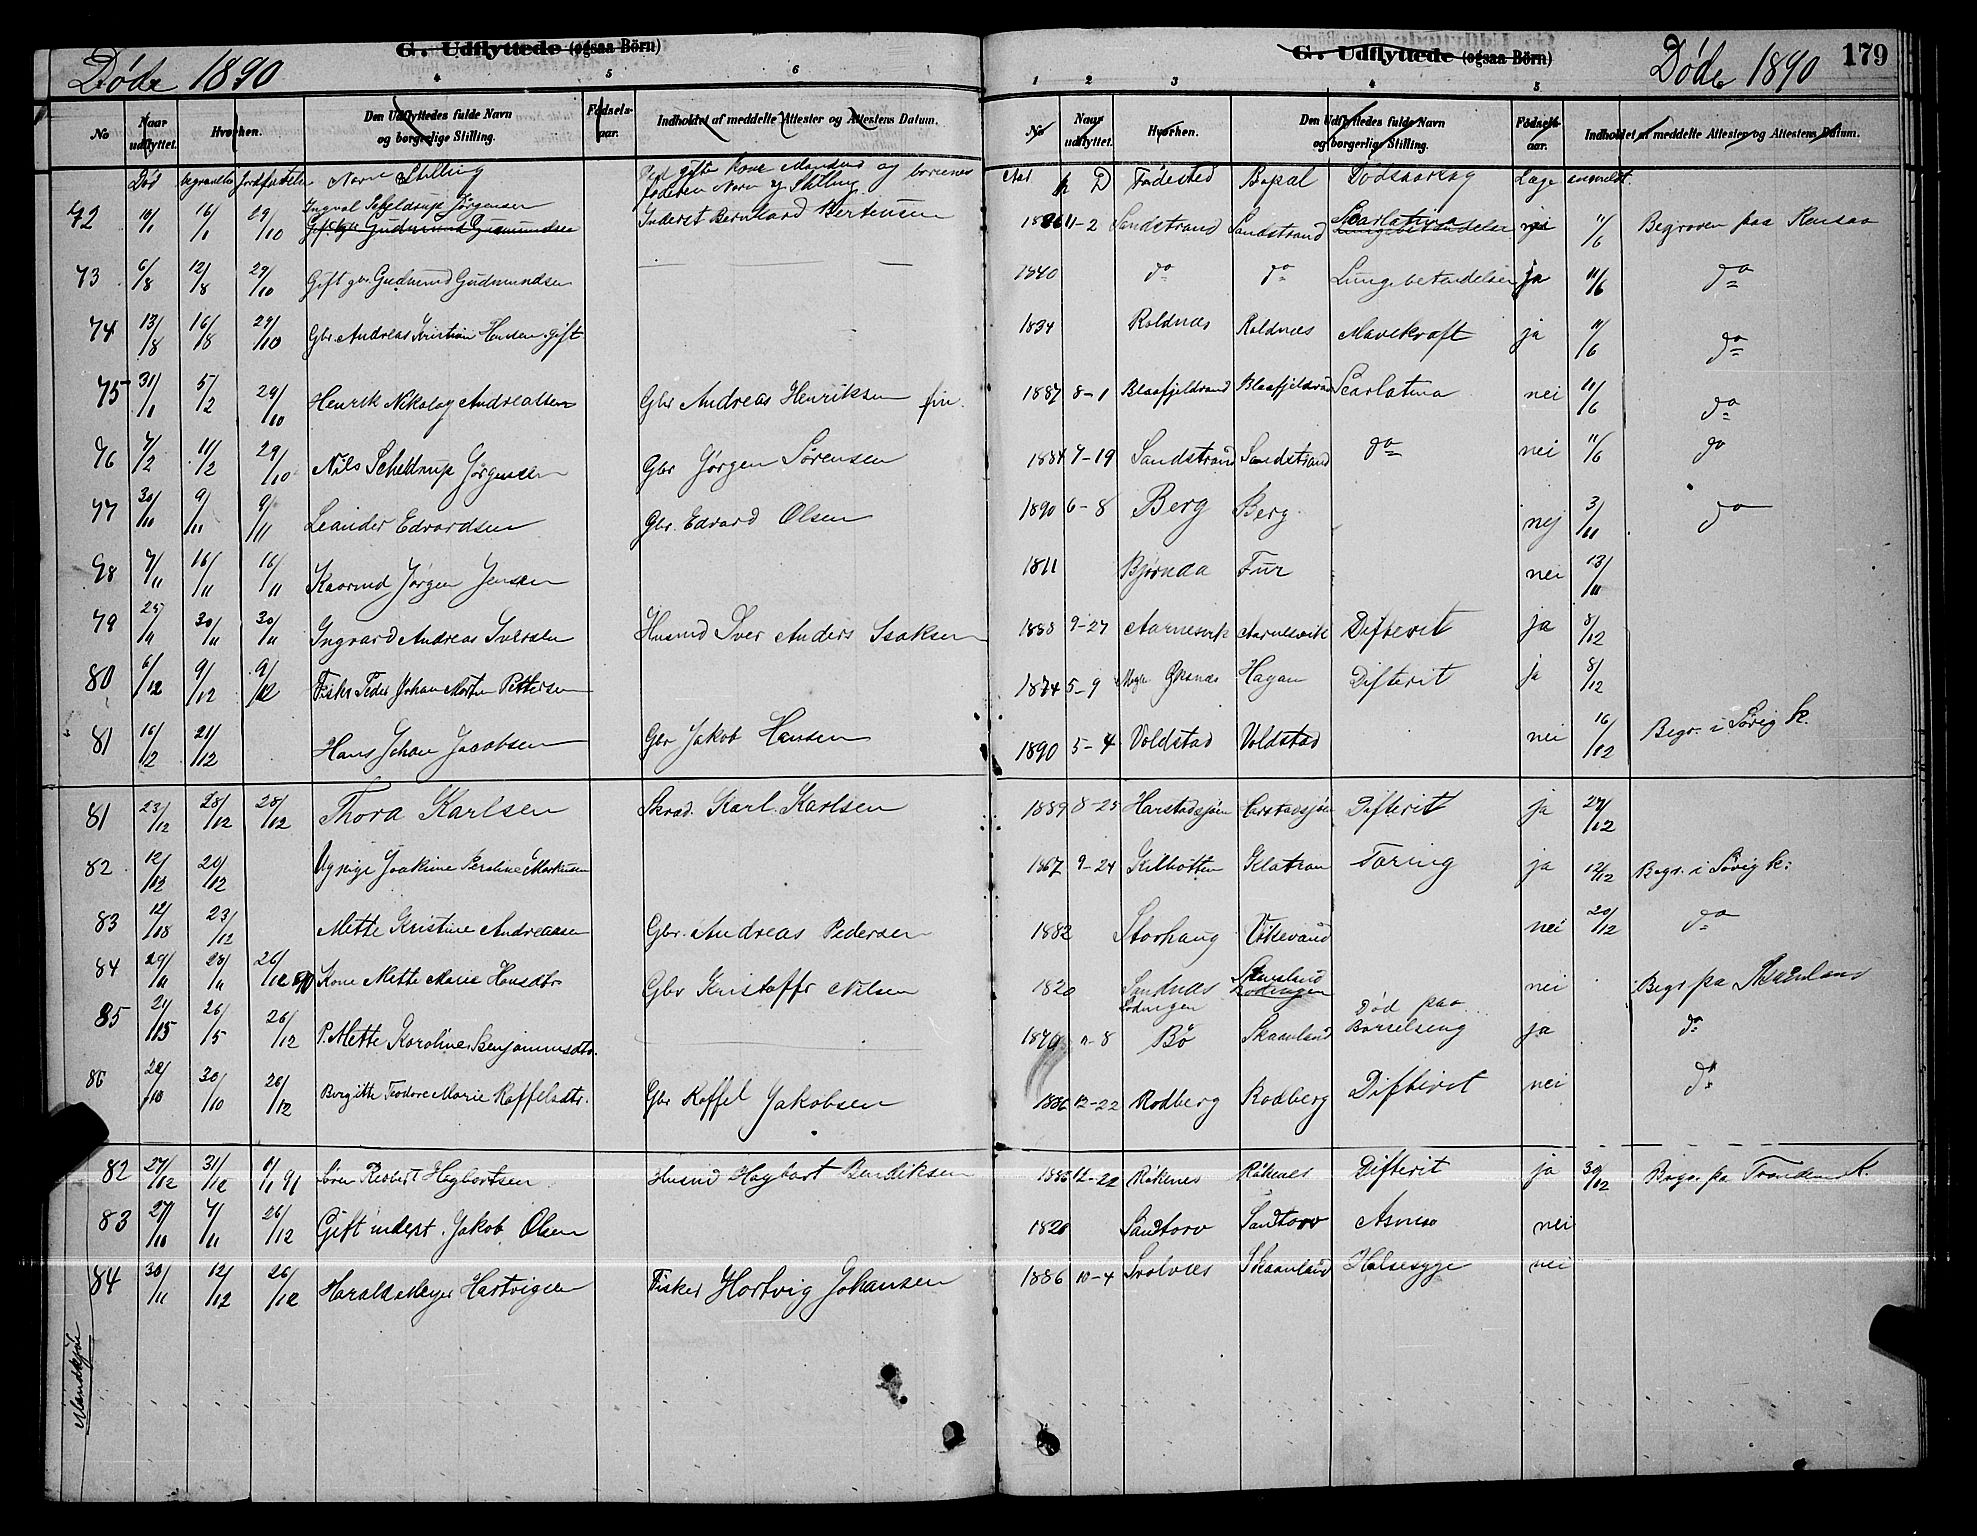 Døde 1890
G. Udflyttede (ogsaa Börn)
4 5 6
No Naar udflyttet. Hvorhen. Den Udflyttedes fulde Navn og borgerlige Stilling. Födsels-aar. Indholdet af meddelte Attester og Attestens Datum.
Død begravelse Jordfæstelse Navn Stilling
Faderen Navn og Stilling
72 16/1 29/10 Ingval Scheldrup Jørgensen Inderst Bernhard Bertensen
Gudmund Gudmundsen
73 6/8 12/8 29/10 Gift gbr Gudmund Gudmundsen
74 13/8 16/8 29/10 Gbr. Andreas Kristian Hensen gift
75 31/1 5/2 29/10 Henrik Nikolay Andreassen Gbr Andreas Henriksen fin.
76 7/2 11/2 29/10 Nils Scheldrup Jørgensen Gbr Jørgen Sørensen
77 30/10 9/11 9/11 Leander Edvardsen Gbr. Edvard Olsen
78 7/11 16/11 16/11 Kaarmd Jørgen Jensen
79 25/11 30/11 30/11 Ingvard Andreas Iversen Husmd Iver Anders Isaksen
80 6/12 9/12 9/12 Fisker Peder Johan Morten Pettersen
81 16/12 21/12 Hans Johan Jacobsen Gbr Jakob Hansen
81 23/12 28/12 28/12 Thora Karlsen Skræd. Karl Karlsen
82 12/12 20/12 Ugpige Joakime Peroline Markusen
83 23/12 Mette Kristine Andreassen Gbr. Andreas Pedersen
84 28/11 26/12 90 Kone Mette Marie Hansdtr Gbr Kristoffr Nilsen
85 26/5 26/12 P. Mette Karoline Benjaminsdtr.
86 30/10 26/12 Birgitte Teodore Marie Roffelsdtr. Gbr Roffel Jakobsen
82 27/12 31/12 91 Sören Robert Hagbartsen Husmd Hagbart Bendiksen
83 27/10 26/12 Gift inderst. Jakob Olsen
84 30/11 12/12 26/12 Harald Meyer Hartvigsen Fisker Hartvig Johansen
Mandskjøn
G. Udflyttede (ogsaa Börn)
Døde 1890
179
1 2 3 4 5
No Naar udflyttet. Hvorhen. Den Udflyttedes fulde Navn og borgerlige Stilling. Födsels-aar. Indholdet af meddelte Attester og Attestens Datum.
Aar D Fødested Bopæl Dødsaarsag Læge anmeldt.
1886 11-2 Sandstrand Sandstrand Scarlatina nei 11/6 Begraven paa
1840 do do Lungebetændelse ja 11/6 do
1834 Roldnæs Roldnæs Mavekræft ja 11/6 do
1887 8-1 Blaafjeldrand Blaafjeldrand Scarlatina nei 11/6 do
1884 7-19 Sandstrand Sandstrand do nei 11/6 do
1890 6-8 Berg Berg nej 3/11 do
1811 Bjørnda Fur nei 13/11
1888 9-27 Aarnesvik Aarnesvik Difterit ja 8/12
1874 5-9 Øksnæs Hagan Difterit ja 8/12
1890 5-4 Voldstad Voldstad nei 16/12 Begr. i Sörvig k.
1889 8-25 Harstadsjøen Harstadsjøen Difterit ja 27/12
1867 9-24 Kilbotten Tæring ja 12/12 Begr. i Sörvig k.
1882 Storhaug Vikevand nei 20/12 do
1820 Sandnæs Lødingen Skaanland Lodingen nei Begr. pa Skaanland
8 Bö Skaanland Død paa Barselseng ja do
1886 12-22 Rodberg Rodberg Difterit nei do
1886 12-22 Røkenes Røkenes Difterit ja 30/12 Begr. pa Trondenes k.
1820 Sandtorv Sandtorv nei
1886 10-4 Skaanland Halsesyge nei